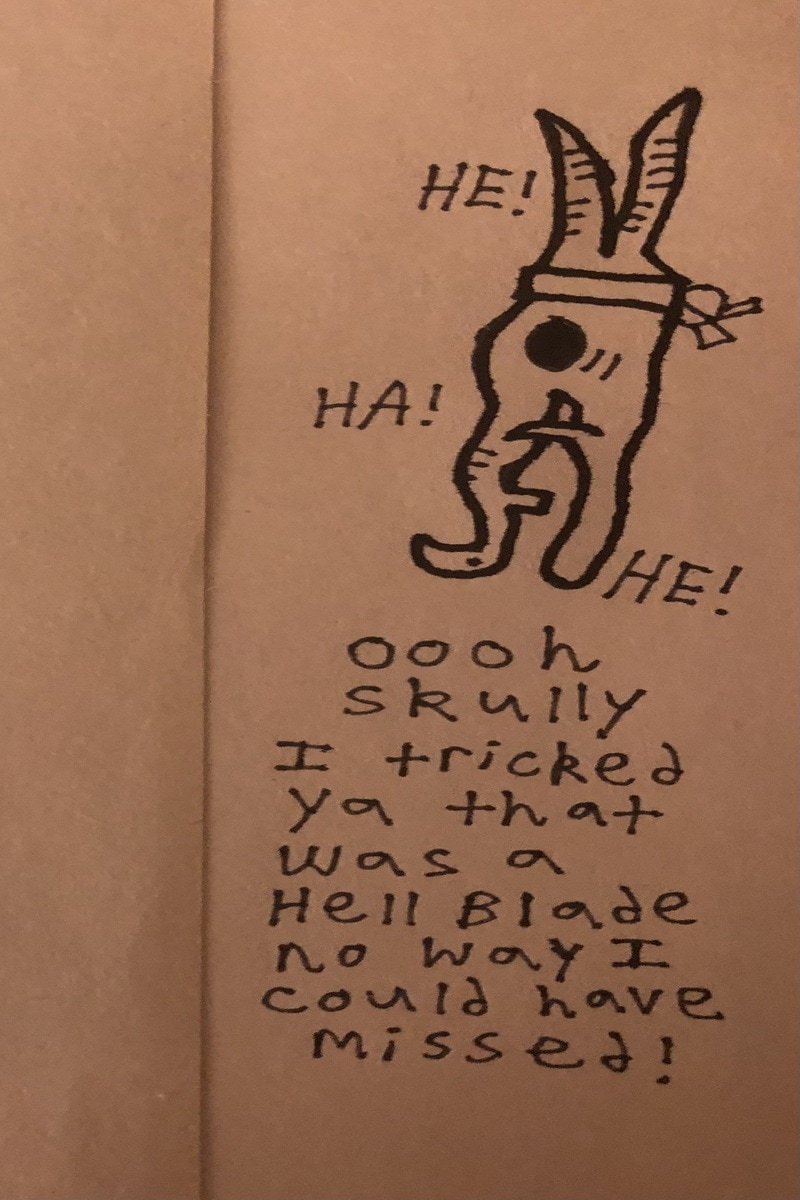 HE!
HA!
HE!
oooh
skully
I tricked
ya that
was a
Hell Blade
no way I
could have
missed!